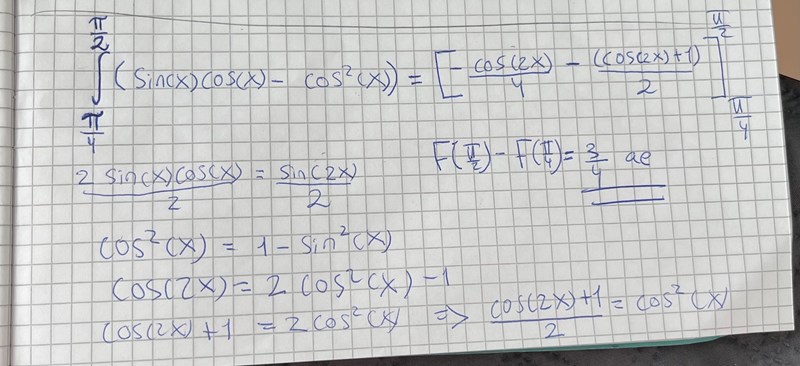 ∫_{π/4}^{π/2} (sin(x)cos(x) - cos²(x)) = [-cos(2x)/4 - (cos(2x)+1)/2]_{π/4}^{π/2}
F(π/2) - F(π/4) = 3/4 ae
2 sin(x)cos(x)/2 = sin(2x)/2
cos²(x) = 1 - sin²(x)
cos(2x) = 2 cos²(x) - 1
cos(2x) + 1 = 2cos²(x) => cos(2x)+1/2 = cos²(x)